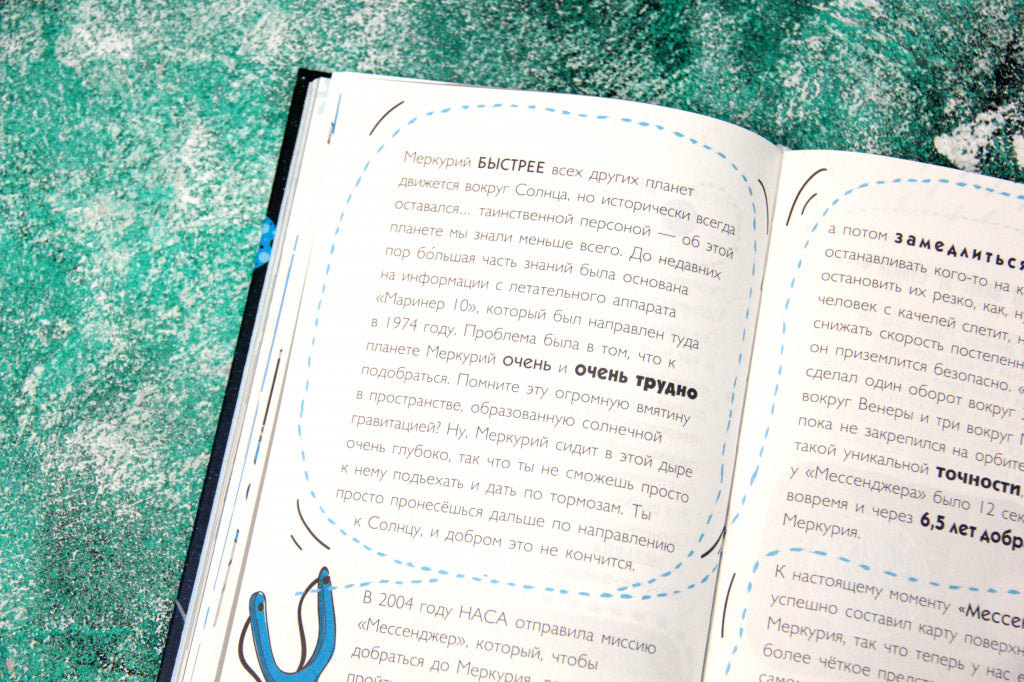 Меркурий БЫСТРЕЕ всех других планет
движется вокруг Солнца, но исторически всегда
оставался... таинственной персоной — об этой
планете мы знали меньше всего. До недавних
пор бо́льшая часть знаний была основана
на информации с летательного аппарата
«Маринер 10», который был направлен туда
в 1974 году. Проблема была в том, что к
планете Меркурий очень и очень трудно
подобраться. Помните эту огромную вмятину
в пространстве, образованную солнечной
гравитацией? Ну, Меркурий сидит в этой дыре
очень глубоко, так что ты не сможешь просто
к нему подъехать и дать по тормозам. Ты
просто пронесёшься дальше по направлению
к Солнцу, и добром это не кончится.
В 2004 году НАСА отправила миссию
«Мессенджер», который, чтобы
добраться до Меркурия,
а потом замедлиться
останавливать кого-то на
остановить их резко, как,
человек с качелей слетит,
снижать скорость
он приземлится безопасно.
сделал один оборот вокруг
вокруг Венеры и три вокруг
пока не закрепился на
такой уникальной точности,
у «Мессенджера» было 12
вовремя и через 6,5 лет
Меркурия.
К настоящему моменту
успешно составил карту
Меркурия, так что теперь у нас
более чёткое